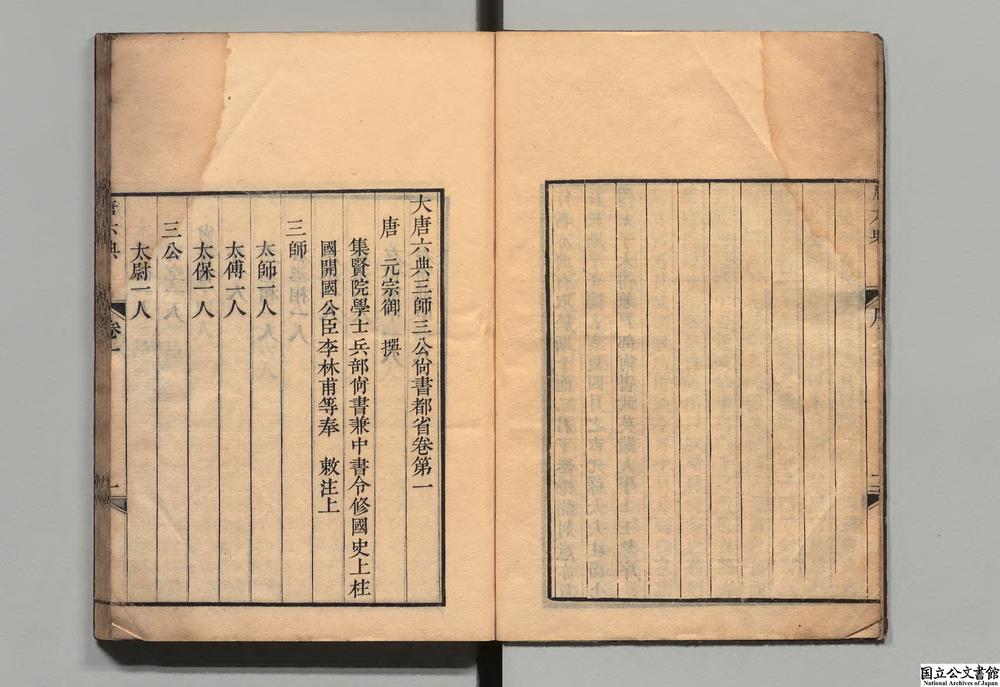 大唐六典三師三公尙書都省卷第一
唐 元宗御 撰
集賢院學士兵部尙書兼中書令修國史上柱
國開國公臣李林甫等奉 敕注上
三師
太師一人
太傅一人
太保一人
三公
太尉一人
唐六典
卷一
一
国立公文書館
National Archives of Japan